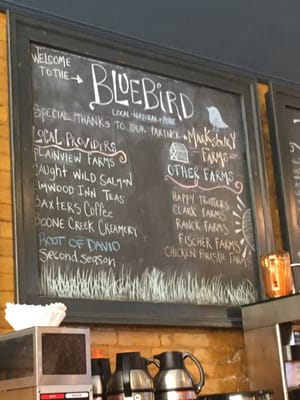 WELCOME
TO THE
BLUEBIRD
LOCAL • NATURAL • PURE
SPECIAL THANKS TO OUR PARTNER
MARKSBURY
FARMS
LOCAL PROVIDERS
PLAINVIEW FARMS
CAUGHT WILD SALMON
ELMWOOD INN TEAS
BAXTERS COFFEE
BOONE CREEK CREAMERY
ROOT OF DAVID
SECOND SEASON
OTHER FARMS
HAPPY TROTTERS
CLARK FARMS
RANCK FARMS
FISCHER FARMS
CHICKEN